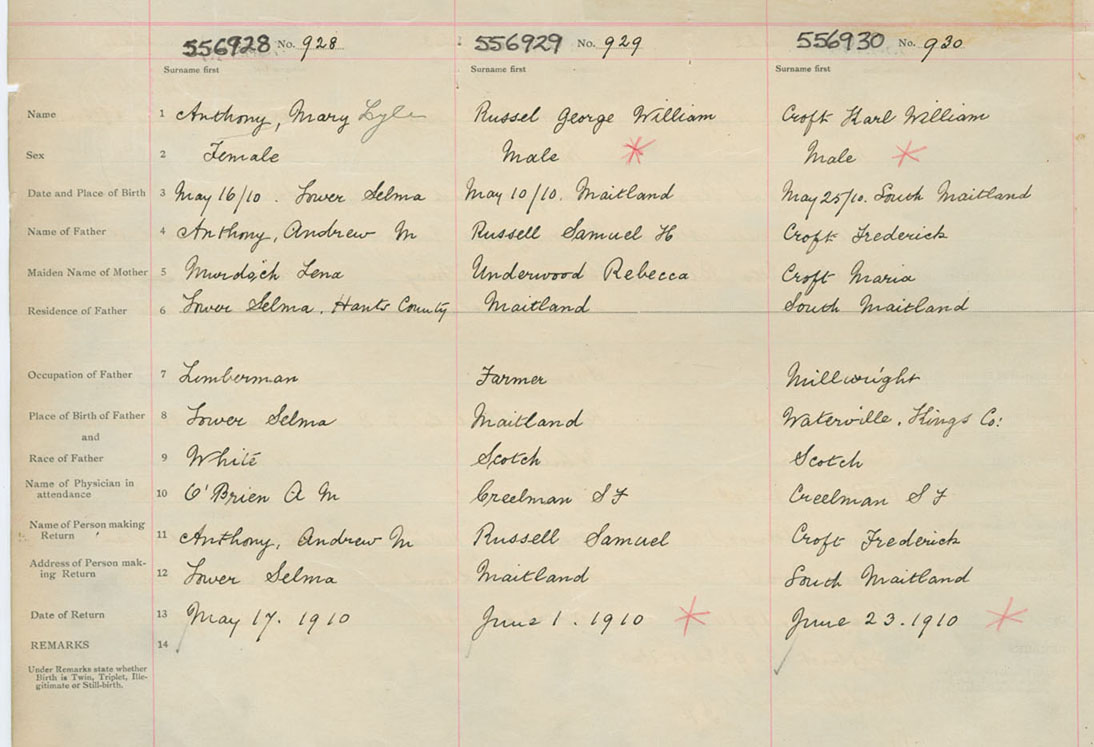 556928 No. 928 556929 No. 929 556930 No. 930
Surname first Surname first Surname first
Name 1 Anthony, Mary Lyle Russel George William Croft Karl William
Sex 2 Female Male Male
Date and Place of Birth 3 May 16/10. Lower Selma May 10/10. Maitland May 25/10. South Maitland
Name of Father 4 Anthony, Andrew M Russell Samuel H Croft Frederick
Maiden Name of Mother 5 Murdoch Lena Underwood Rebecca Croft Maria
Residence of Father 6 Lower Selma, Hants County Maitland South Maitland
Occupation of Father 7 Lumberman Farmer Millwright
Place of Birth of Father 8 Lower Selma Maitland Waterville, Kings Co:
and
Race of Father 9 White Scotch Scotch
Name of Physician in
attendance 10 O'Brien A M Creelman S F Creelman S F
Name of Person making
Return 11 Anthony, Andrew M Russell Samuel Croft Frederick
Address of Person mak-
ing Return 12 Lower Selma Maitland South Maitland
Date of Return 13 May 17. 1910 June 1. 1910 June 23. 1910
REMARKS 14
Under Remarks state whether
Birth is Twin, Triplet, Ille-
gitimate or Still-birth.